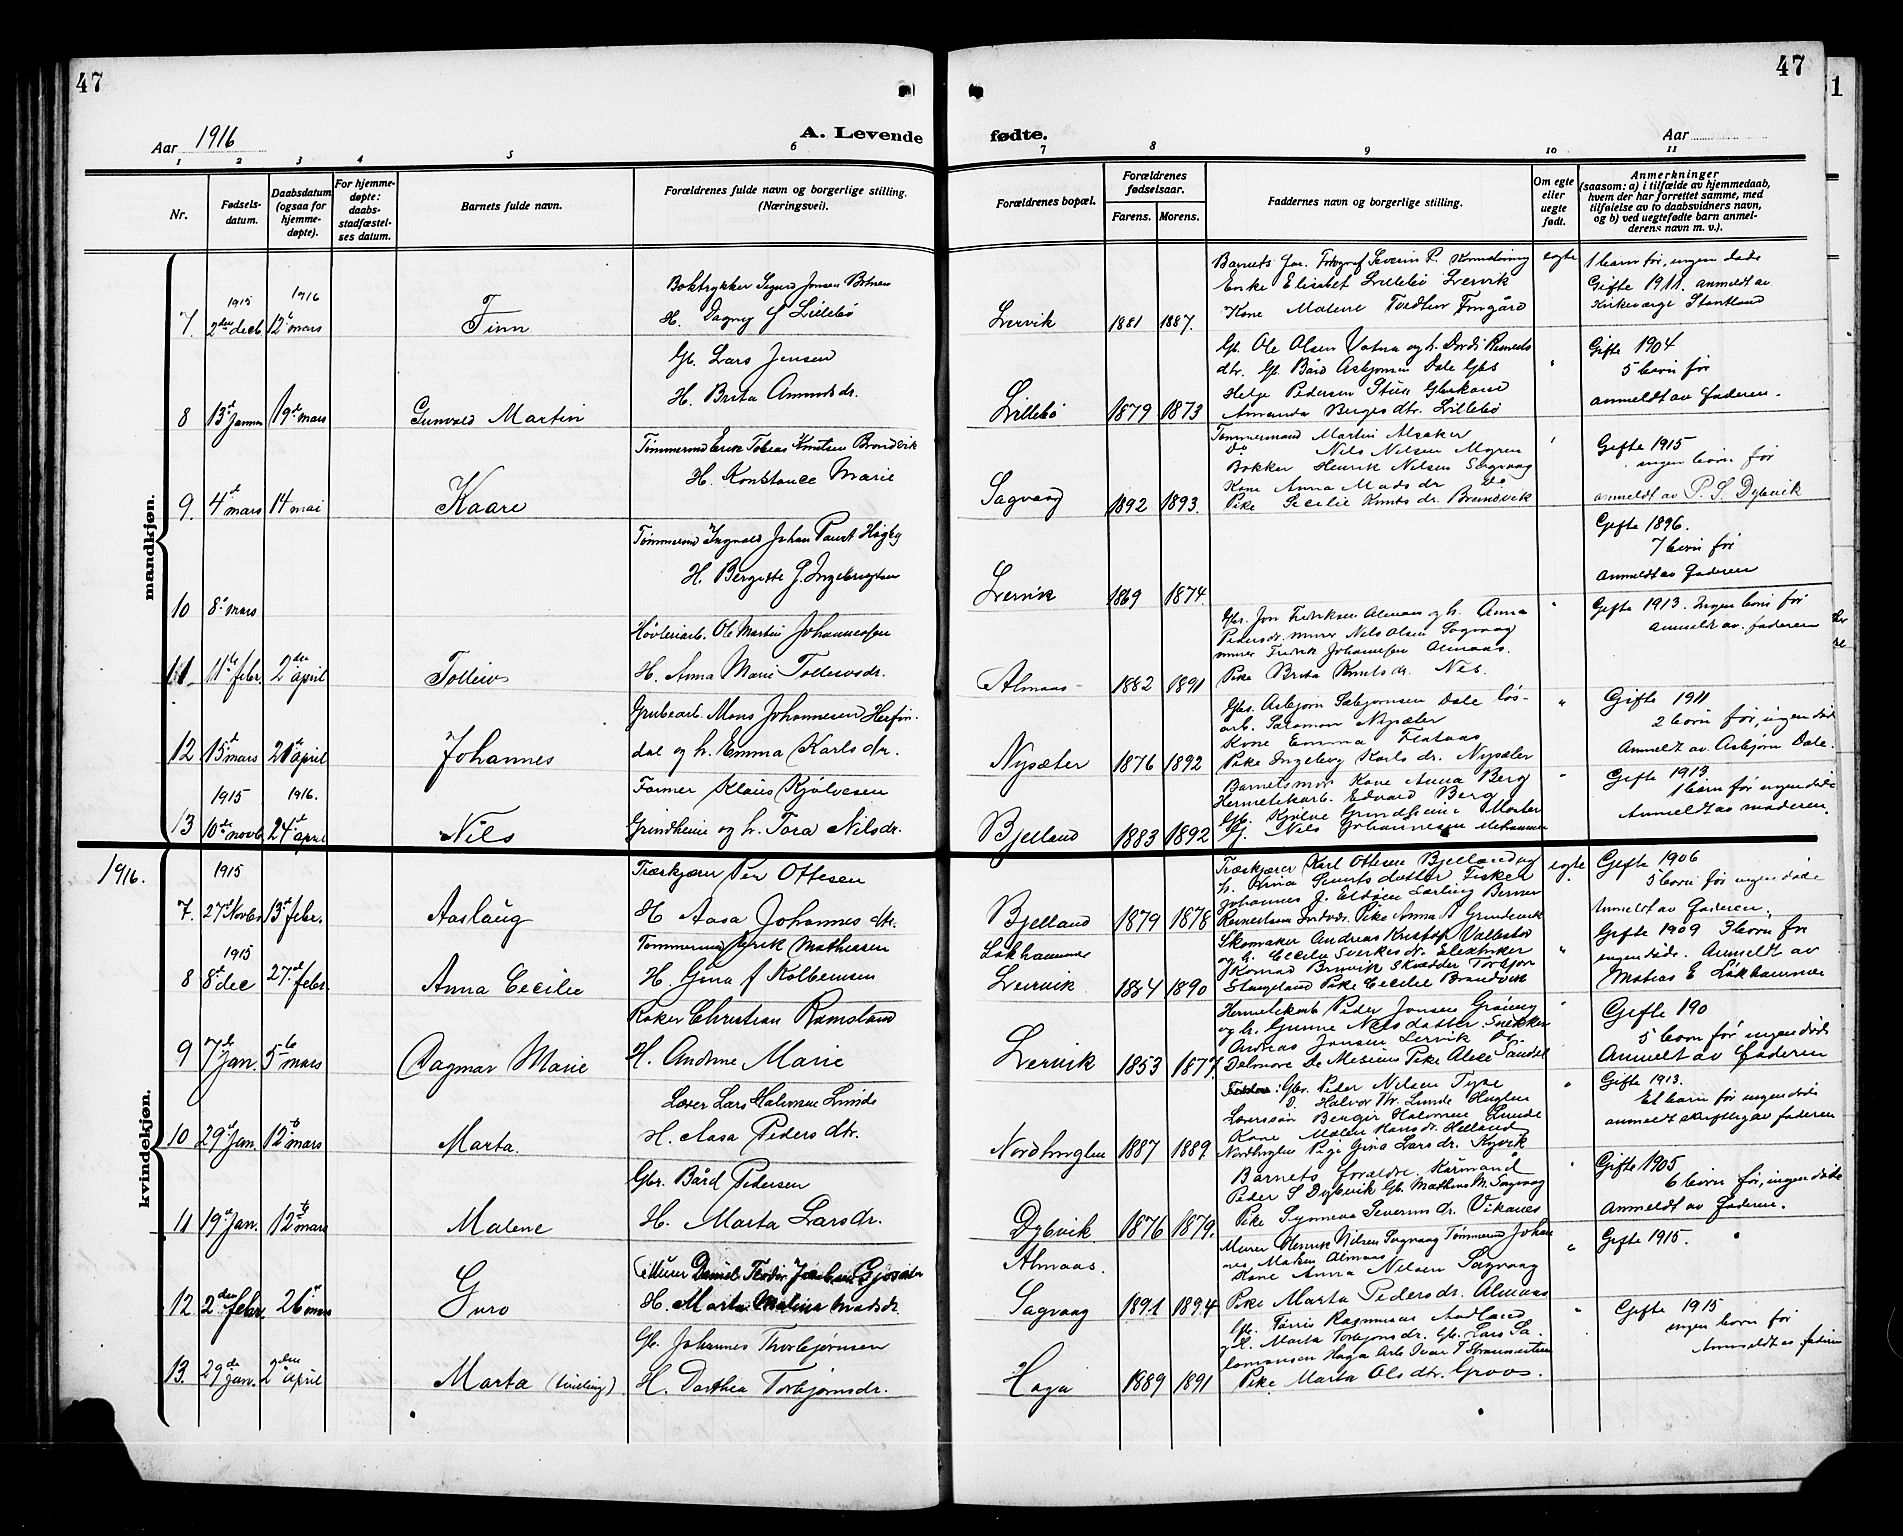 47
47
1
Aar 1916
A. Levende fødte.
Aar
1 2 3 4 5 6 7 8 9 10 11
Nr.
Fødsels-
datum.
Daabsdatum
(ogsaa for
hjemme-
døpte).
For hjemme-
døpte:
daabs-
stadfæstel-
ses datum.
Barnets fulde navn.
Forældrenes fulde navn og borgerlige stilling.
(Næringsvei).
Forældrenes bopæl.
Forældrenes
fødselsaar.
Farens. Morens.
Faddernes navn og borgerlige stilling.
Om egte
eller
uegte
født.
Anmerkninger
(saasom: a) i tilfælde av hjemmedaab,
hvem der har forrettet samme, med
tilføielse av to daabsvidners navn,
og b) ved uegtefødte barn anmel-
derens navn m. v.).
mandkjøn.
1915 1916
7. 2den decb 12te mars Finn
Boktrykker Sigurd Jensen Botnen
H. Dagny Lillebø
Lervik 1881 1887.
Enke Elisabet Lillebø Lervik
Kone Malene
egte
1 barn før, ingen døde
Gifte 1911. anmeldt av
Kirkeværge Stautland
8 13de Januar 19de mars Gunvald Martin
Gb. Lars Jensen
H. Brita Amundsdr.
Lillebø 1879 1873
Gb. Ole Olsen Vatna og h. Dordi
dtr. Gb. Bård Asbjørnsen Dale Gbs
Helge Pedersen Stua
Amanda Bergesdtr. Lillebø
Gifte 1904
5 børn før
anmeldt av faderen.
9. 4de mars 14 mai Kaare
Tømmermd Erik Tobias Knutsen Brandvik
H. Konstance Marie
Sagvaag 1892 1893.
Tømmermand Martin Alsaker
do Nils Nilsen Myren
Bøkker Henrik Nilsen Sagvaag
Kone Anna Madsdr do
Pike Secilie Knutsdr. Brandvik
Gifte 1915
ingen børn før
anmeldt av P. S. Dybvik
10 8de mars
Tømmermd Ingvald Johan
H. Bergitte J. Ingebrigtsen
Lervik 1869 1874.
Gifte 1896.
7 børn før
Anmeldt av faderen
11 11te febr. 2den april Tolleiv
Høvleriarb. Ole Martin Johannessen
H. Anna Marie Tolleivsdr.
Almaas 1882 1891
Gbr. Jon Fredriksen Almaas og h. Anna
Pedersdr. murer Nils Olsen Sagvaag
murer Fredrik Johannessen Almaas.
Pike Brita Knutsdr. Nes.
Gifte 1913. Ingen børn før
Anmeldt av. faderen
12 15de mars 21de april Johannes
Grubearb. Mons Johannesen Herfin-
dal og h. Emma Karlsdr.
Nysæter 1876 1892
Gbr. Asbjørn Sæbjørnsen Dale løs-
arb. Salomon Nysæter
Kone Emma Flataas
Pike Ingeborg Karlsdr. Nysæter
Gifte 1911
2 børn før, ingen døde
Anmeldt av Asbjørn Dale.
1915 1916.
13 10de novb 24de april Nils
Farmer Klaus Kjølvesen
Grindheim og h. Tora Nilsdr.
Bjelland 1883 1892
Barnets mor Kone Anna Berg
Hermetikarb. Edvard Berg
Gb. Kjølve Grindheim
Gj. Nils Johannesen
Gifte 1913
1 barn før ingen døde
Anmeldt av moderen.
1916.
kvindekjøn.
1915
7. 27de Novbr 13de febr. Aaslaug
Træskjærer Per Ottesen
H Aasa Johannesdtr.
Bjelland 1879 1878
Træskjærer Karl Ottesen Bjelland og
h. Anna Sivertsdatter Fisker
Johannes J. Eldøen Lærling Berner
Pike Anna
egte
Gifte 1906
5 børn før ingen døde
Anmeldt av faderen.
1915
8 8de dec 27de febr Anna Cecilie
Tømmermd Erik Mathiesen
H. Gina f Kolbensen
Løkhammer
Leirvik 1884 1890
Skomaker Andreas Kristofr Vallestad
og h. Cecilie Elektriker
Konrad Brinvik Skrædder Torbjørn
Stangeland Pike Cecilie Brandvik
Gifte 1909 3 børn før
ingen døde. Anmeldt av
Matias E Løkhammer
9 7de Jan. 5te mars Dagmar Marie
Christian Ramsland
H. Andrine Marie
Lervik 1853 1877.
Hermetikarb Peder Jonsen
og h. Gunne Nilsdatter. Snekker
Andreas Jonsen Lervik Do
Gifte 190
5 børn før ingen døde
Anmeldt av faderen
10 29de Jan. 12te mars Marta.
Lærer Lars Halvorsen Lunde
H. Aasa Pedersdtr.
Nordhuglen 1887 1889.
Gbr. Peder Nilsen Tyse
D. Halvor Th. Lunde Huglen
Lærersøn Bengir Halvorsen Lunde
Kone Malen Hansdr. Helland
Nordhuglen Pige Gina Larsdr. Kyvik
Gifte 1913.
Et barn før ingen døde
anmeldt skriftlig av faderen
11 19de Jan. 12te mars Malene
Gbr. Bård Pedersen
H. Marta Larsdr.
Dybvik 1876 1879.
Barnets forældre. Kårmand
Peder S Dybvik Gb. Mathias M. Sagvaag
Pike Synneva Severinsdr. Vikanes
Gifte 1905
6 børn før, ingen døde
Anmeldt av faderen.
12. 2den febr. 26de mars Guro
Murer Daniel
H. Marta Malina Madsdr.
Almaas.
Sagvaag 1891 1894
Murer Henrik Nilsen Sagvaag Tømmermd Johan
nes Madsen Almaas
Kone Anna Nilsen Sagvaag
Pike Marta Pedersdr. Almaas
Gifte 1915.
13. 29de Jan. 2den april Marta (tvilling)
Gb. Johannes Thorbjørnsen
H. Dorthea Torbjørnsdr.
Haga 1889 1891
Gb. Tørris Rasmussen Aadland
og h. Marta Torbjørnsdr. Gb. Lars Sa-
lomonsen Haga Arb Ivar
Pike Marta Olsdtr. Groos.
Gifte 1915
ingen børn før
Anmeldt av faderen